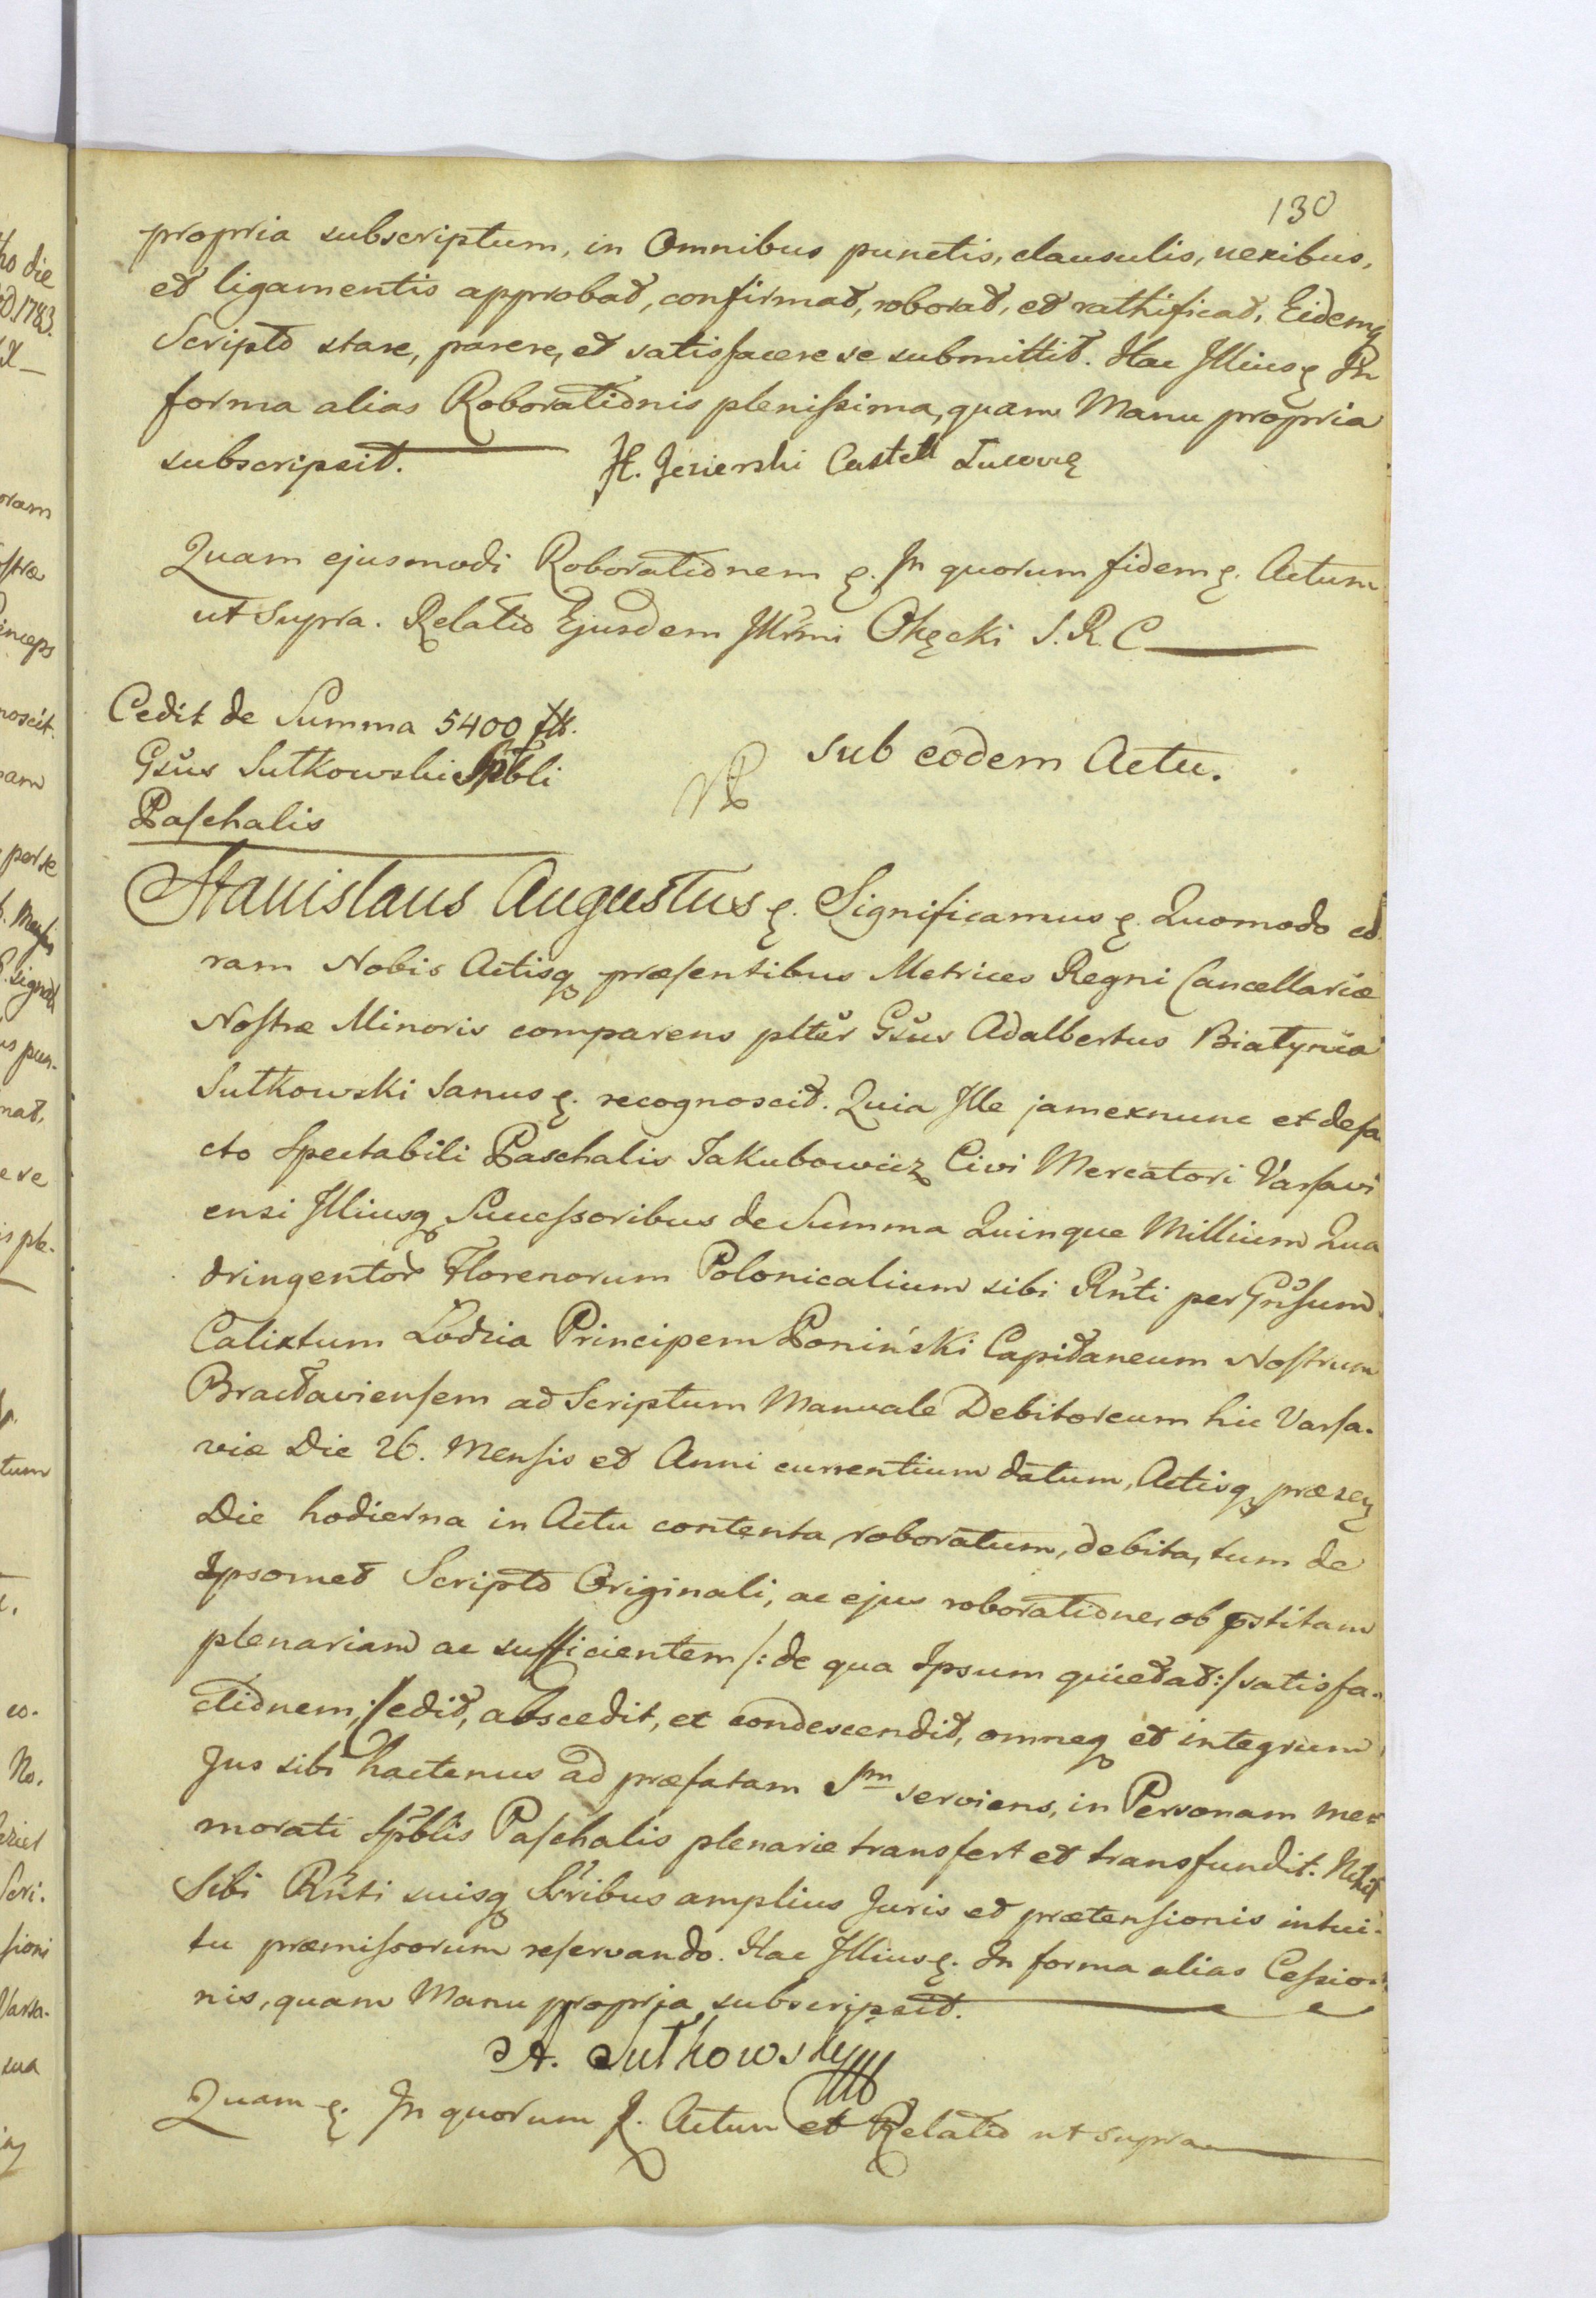 130
propria subscriptum, in Omnibus punctis, clausulis, nexibus,
et ligamentis approbat, confirmat, roborat, et rathificat, Eidemq
Scripto stare, parere, et satisfacere se submittit. Hac Illius ę In
forma alias Roborationis plenissima, quam Manu propria
subscripsit. H. Jezierski Castell Lucovię
Quam ejusmodi Roborationem ę. In quorum fidem ę. Actum
ut supra. Relatio Ejusdem Illrmi Okęcki S. R. C
Cedit de Summa 5400 fl.
Gsus Sutkowski Spbli
Paschalis
sub eodem Actu.
Stanislaus Augustus ę. Significamus ę. Quomodo co
ram Nobis Actisq præsentibus Metrices Regni Cancellariæ
Nostræ Minoris comparens plter Gsus Adalbertus Białynia
Sutkowski sanus ę. recognoscit. Quia Ille jam exnunc et defa
cto Spectabili Paschalis Jakubowicz Civi Mercatori Varsavi
ensi Illiusq Successoribus de Summa Quinque Millium Qua
dringentor Florenorum Polonicalium sibi Rnti per Gnsum
Calixtum Lodzia Principem Poniński Capitaneum Nostrum
Bracłaviensem ad Scriptum Manuale Debitoreum hic Varsa-
viæ Die 26. Mensis et Anni currentium datum, Actisq præsen
Die hodierna in Actu contenta, roboratum, debita, tum de
Ipsomet Scripto Originali, ac ejus roboratione, ob pstitam
plenariam ac sufficientem /: de qua Ipsum quietat :/ satisfa-
ctionem, Cedit, abscedit, et condescendit, omneq et integrum
Jus sibi hactenus ad præfatam Sm serviens, in Personam me-
morati Spblis Paschalis plenarie transfert et transfundit. Nihil
Sibi Rnti suisq Sribus amplius Juris et prætensionis intui-
tu præmissorum reservando. Hac Illius ę. In forma alias Cessio-
nis, quam Manu propria subscripsit.
A. Sutkowski
Quam ę. In quorum f. Actum et Relatio ut supra